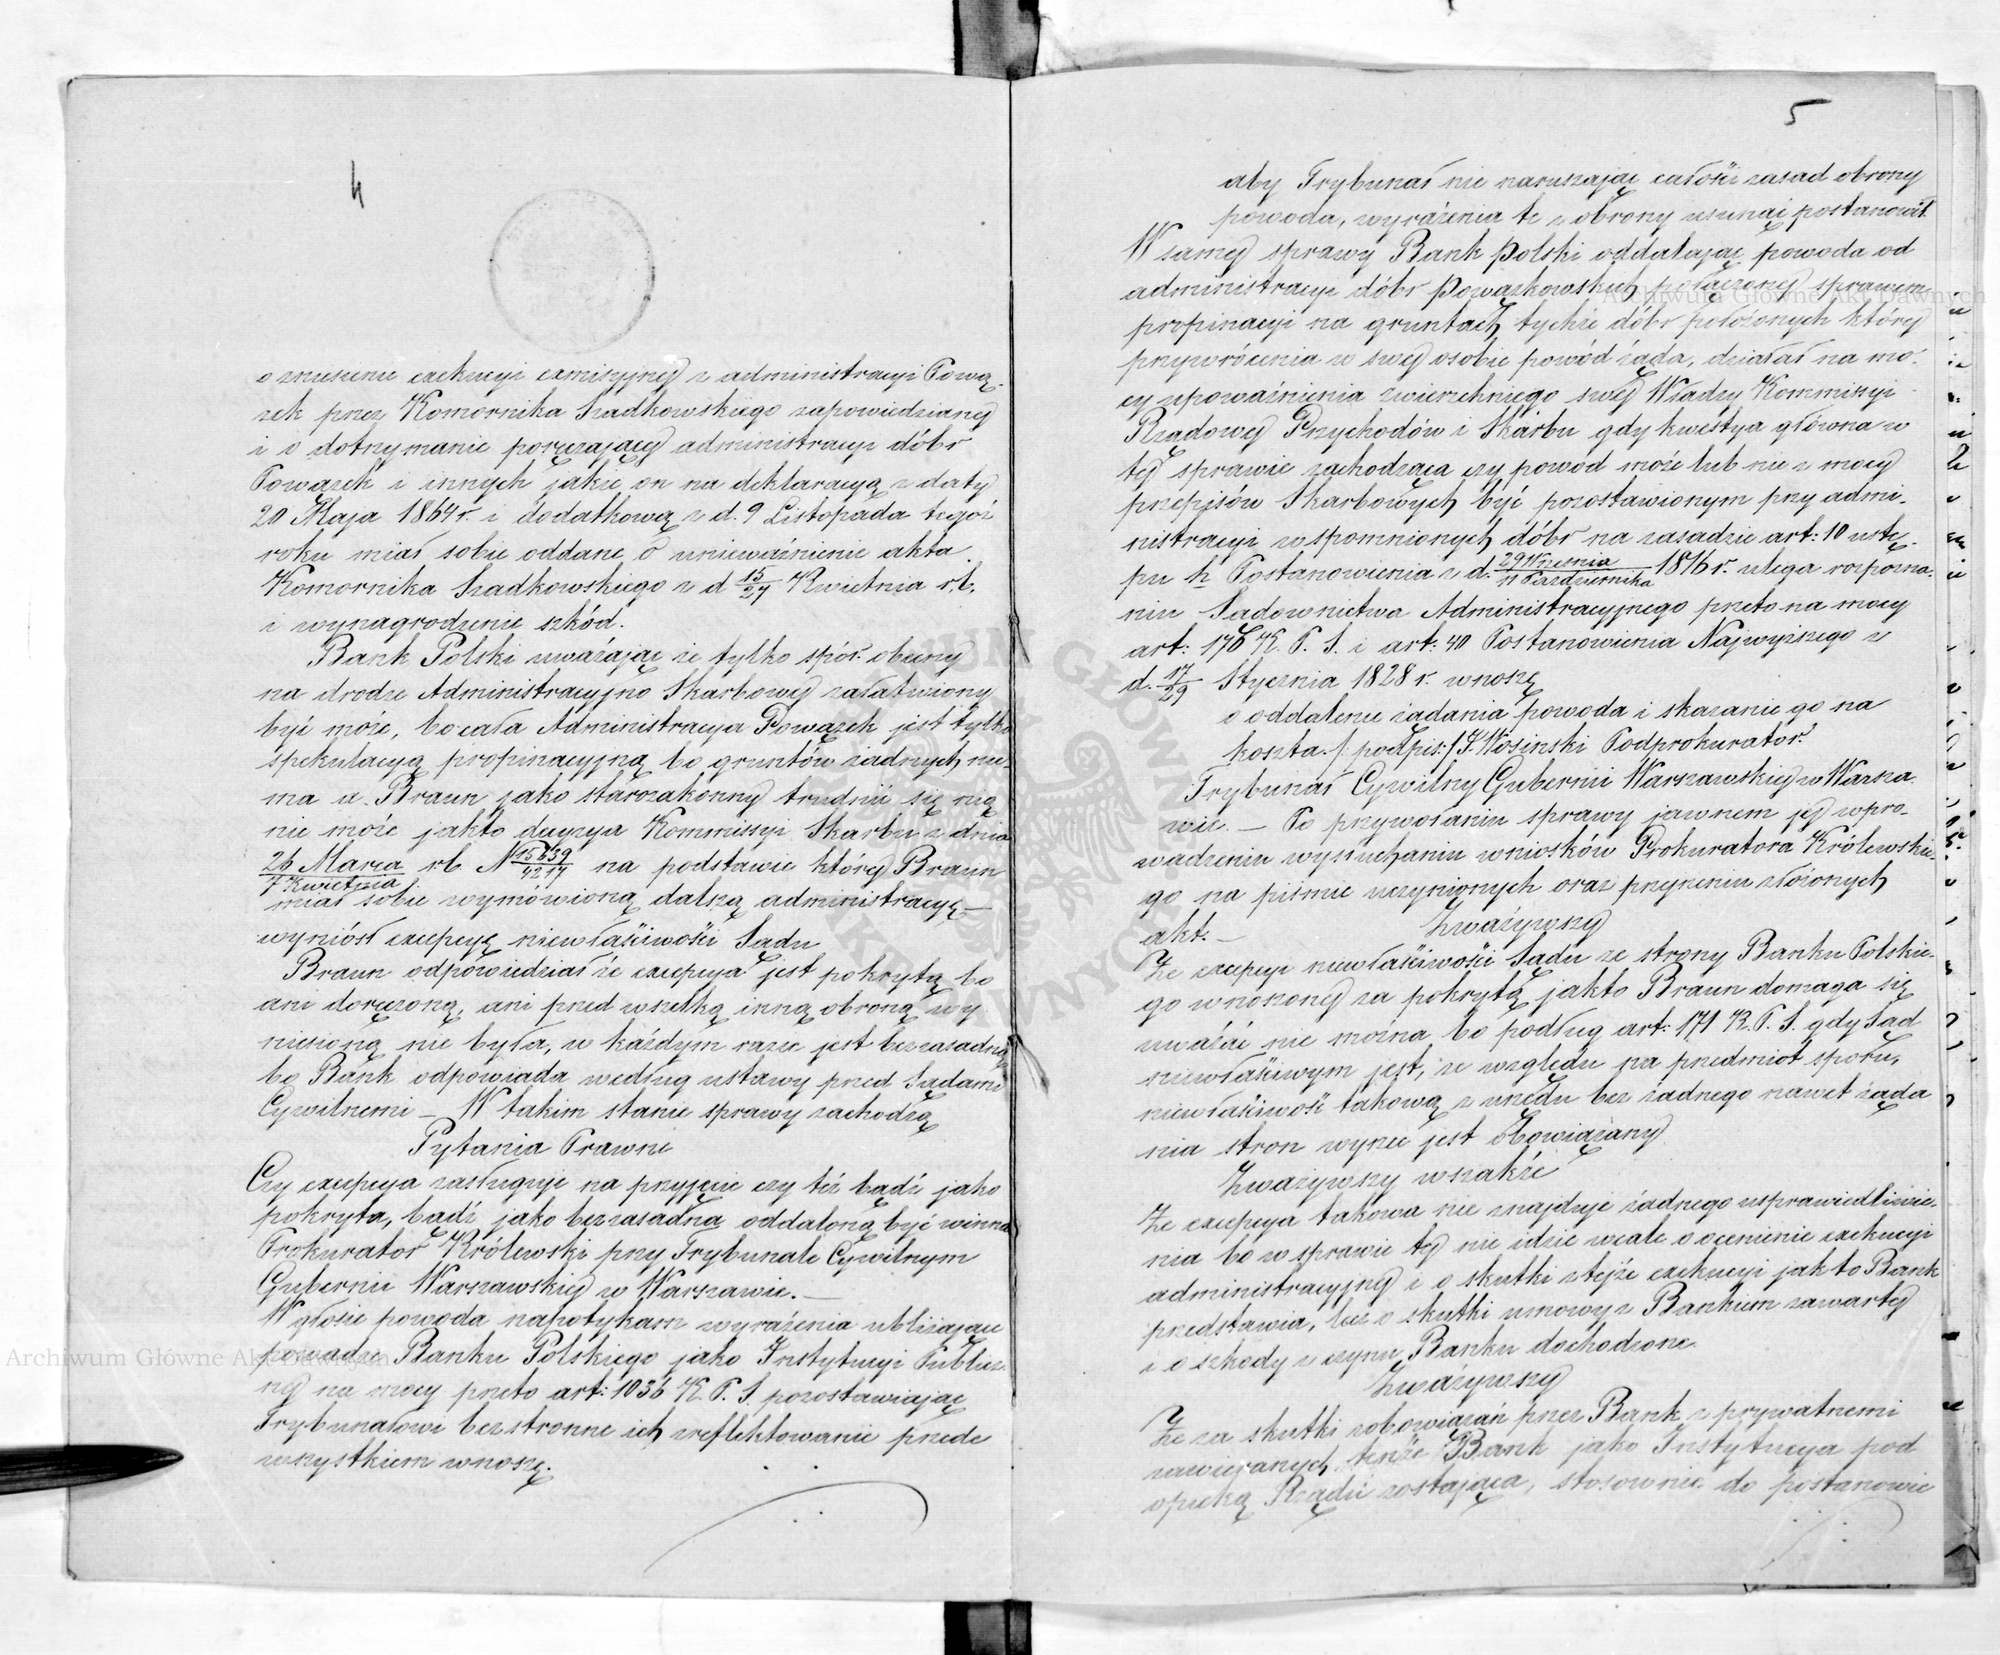 4
o zniesienie exekucyi exmisyjnej z administracyi Pową-
zek przez Komornika Szadkowskiego zapowiedzianej
i o dotrzymanie poręczającej administracyi dóbr
Powązek i innych jakie on na deklaracyą z daty
20 Maja 1864 r. i dodatkową z d. 9 Listopada tegoż
roku miał sobie oddane o unieważnienie akta
Komornika Szadkowskiego z d 15/27 Kwietnia r.b.
i wynagrodzenie szkód.
Bank Polski uważając że tylko spór obecny
na drodze Administracyjno Skarbowej załatwiony
być może, bo cała Administracya Powązek jest tylko
spekulacyą propinacyjną bo gruntów żadnych nie-
ma a Braun jako starozakonny trudnić się nią
nie może jak to decyzya Kommissyi Skarbu z dnia
26 Marca/7 Kwietnia r.b. N 15639/4214 na podstawie której Braun
miał sobie wymówioną dalszą administracyę —
wyniósł excepcyę niewłaściwości Sądu
Braun odpowiedział że excepcya jest pokrytą bo
ani doręczoną, ani przed wszelką inną obroną wy
niesioną nie była, w każdym razie jest bezzasadną
bo Bank odpowiada według ustawy przed Sądami
Cywilnemi — W takim stanie sprawy zachodzą
Pytania Prawne
Czy excepcya zasługuje na przyjęcie czy też bądź jako
pokryta, bądź jako bezzasadna oddaloną być winna
Prokurator Królewski przy Trybunale Cywilnym
Gubernii Warszawskiej w Warszawie. —
W głosie powoda napotykam wyrażenia ubliżające
powadze Banku Polskiego jako Instytucyi Publicz-
nej na mocy przeto art: 1036 K. P. S. pozostawiając
Trybunałowi bezstronne ich zreflektowanie przede
wszystkiem wnoszę.
5
aby Trybunał nie naruszając całości zasad obrony
powoda, wyrażenia te z obrony usunąć postanowił.
W samej sprawy Bank Polski oddalając powoda od
administracyi dóbr Powązkowskich połączonej z prawem
propinacyi na gruntach tychże dóbr położonych której
przywrócenia w swej osobie powód żąda, działał na mo-
cy upoważnienia zwierzchniego swej Władzy Kommissyi
Rządowej Przychodów i Skarbu gdy kwestya główna w
tej sprawie zachodząca czy powód może lub nie z mocy
przepisów Skarbowych być pozostawionym przy admi-
nistracyi wspomnionych dóbr na zasadzie art: 10 ustę-
pu h Postanowienia z d. 29 Września/11 Października 1816 r. ulega rozpozna-
niu Sądownictwa Administracyjnego przeto na mocy
art: 176 K. P. S. i art: 40 Postanowienia Najwyższego z
d. 17/29 Stycznia 1828 r. wnoszę
o oddalenie żądania powoda i skazanie go na
koszta. /:podpis:/ J. Wosinski Podprokurator.
Trybunał Cywilny Gubernii Warszawskiej w Warsza
wie. — Po przywołaniu sprawy jawnem jej wpro-
wadzeniu wysłuchaniu wniosków Prokuratora Królewskie-
go na piśmie uczynionych oraz przejrzeniu złożonych
akt. —
Zważywszy
Że excepcyi niewłaściwości Sądu ze strony Banku Polskie-
go wnoszonej za pokrytą jak to Braun domaga się
uważać nie można bo podług art: 171 K. P. S. gdy Sąd
niewłaściwym jest, ze względu na przedmiot sporu,
niewłaściwość takową z urzędu bez żadnego nawet żąda
nia stron wyrzec jest obowiązany
Zważywszy wszakże
Że excepcya takowa nie znajduje żadnego usprawiedliwie-
nia bo w sprawie tej nie idzie wcale o ocenienie exekucyi
administracyjnej i o skutki z tejże exekucyi jak to Bank
przedstawia, lecz o skutki umowy z Bankiem zawartej
i o szkody z czynu Banku dochodzone
Zważywszy
Że za skutki zobowiązań przez Bank z prywatnemi
zawieranych tenże Bank jako Instytucya pod
opieką Rządu zostająca, stosownie do postanowie
Archiwum Główne Akt Dawnych
Archiwum Główne Akt Dawnych